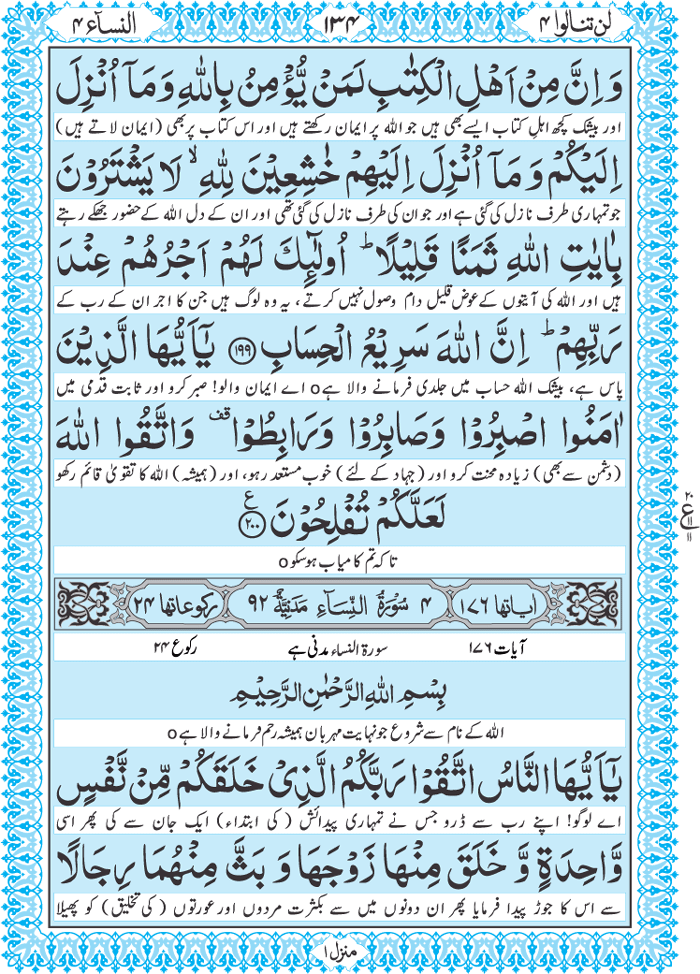 لن تنالوا ۴ ۱۳۴ النسآء ۴
وَ اِنَّ مِنۡ اَهۡلِ الۡكِتٰبِ لَمَنۡ يُّؤۡمِنُ بِاللّٰهِ وَ مَاۤ اُنۡزِلَ
اور بیشک کچھ اہلِ کتاب ایسے بھی ہیں جو اللہ پر ایمان رکھتے ہیں اور اس کتاب پر بھی (ایمان لاتے ہیں)
اِلَيۡكُمۡ وَ مَاۤ اُنۡزِلَ اِلَيۡهِمۡ خٰشِعِيۡنَ لِلّٰهِ ۙ لَا يَشۡتَرُوۡنَ
جو تمہاری طرف نازل کی گئی ہے اور جو ان کی طرف نازل کی گئی تھی اور ان کے دل اللہ کے حضور جھکے رہتے
بِاٰيٰتِ اللّٰهِ ثَمَنًا قَلِيۡلًا ؕ اُولٰٓئِكَ لَهُمۡ اَجۡرُهُمۡ عِنۡدَ
ہیں اور اللہ کی آیتوں کے عوض قلیل دام وصول نہیں کرتے، یہ وہ لوگ ہیں جن کا اجر ان کے رب کے
رَبِّهِمۡ ؕ اِنَّ اللّٰهَ سَرِيۡعُ الۡحِسَابِ ﴿۱۹۹﴾ يٰۤاَيُّهَا الَّذِيۡنَ
پاس ہے، بیشک اللہ حساب میں جلدی فرمانے والا ہے o اے ایمان والو! صبر کرو اور ثابت قدمی میں
اٰمَنُوا اصۡبِرُوۡا وَصَابِرُوۡا وَرَابِطُوۡا قف وَاتَّقُوا اللّٰهَ
(دشمن سے بھی) زیادہ محنت کرو اور (جہاد کے لئے) خوب مستعد رہو، اور (ہمیشہ) اللہ کا تقویٰ قائم رکھو
لَعَلَّكُمۡ تُفۡلِحُوۡنَ ﴿۲۰۰﴾ ع
۲۰
ع ۱۱
۱۱
تاکہ تم کامیاب ہو سکو o
اٰیاتھا ۱۷۶ ۴ سُوۡرَۃُ النِّسَآءِ مَدَنِیَّۃٌ ۹۲ رکوعاتھا ۲۴
آیات ۱۷۶ سورۃ النساء مدنی ہے رکوع ۲۴
بِسۡمِ اللّٰهِ الرَّحۡمٰنِ الرَّحِيۡمِ
اللہ کے نام سے شروع جو نہایت مہربان ہمیشہ رحم فرمانے والا ہے o
يٰۤاَيُّهَا النَّاسُ اتَّقُوۡا رَبَّكُمُ الَّذِىۡ خَلَقَكُمۡ مِّنۡ نَّفۡسٍ
اے لوگو! اپنے رب سے ڈرو جس نے تمہاری پیدائش (کی ابتداء) ایک جان سے کی پھر اسی
وَّاحِدَةٍ وَّ خَلَقَ مِنۡهَا زَوۡجَهَا وَ بَثَّ مِنۡهُمَا رِجَالًا
سے اس کا جوڑ پیدا فرمایا پھر ان دونوں میں سے بکثرت مردوں اور عورتوں (کی تخلیق) کو پھیلا
منزل ۱